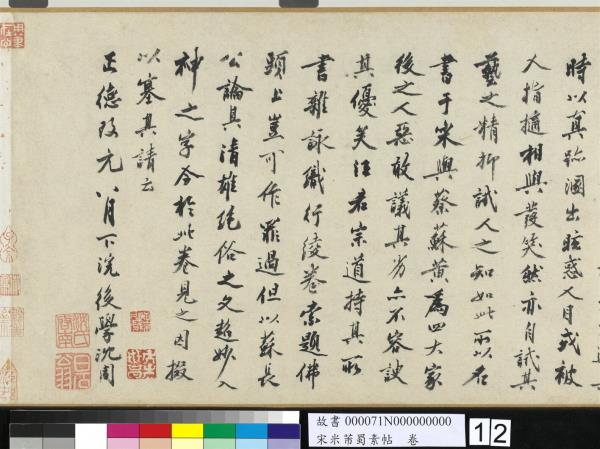 時以真跡溷出眩惑人目或被
人指擿相與發笑然亦自試其
藝之精抑試人之知如此所以名
書于宋與蔡蘇黃為四大家
後之人惡敢議其劣亦不容諛
其優矣汪君宗道持其所
書雜詠織行綾卷索題佛
頭上豈可作罪過但以蘇長
公論其清雄絕俗之文超妙入
神之字今於此卷見之因掇
以塞其請云
正德改元八月下浣後學沈周
故書 000071N000000000
宋米芾蜀素帖 卷
12